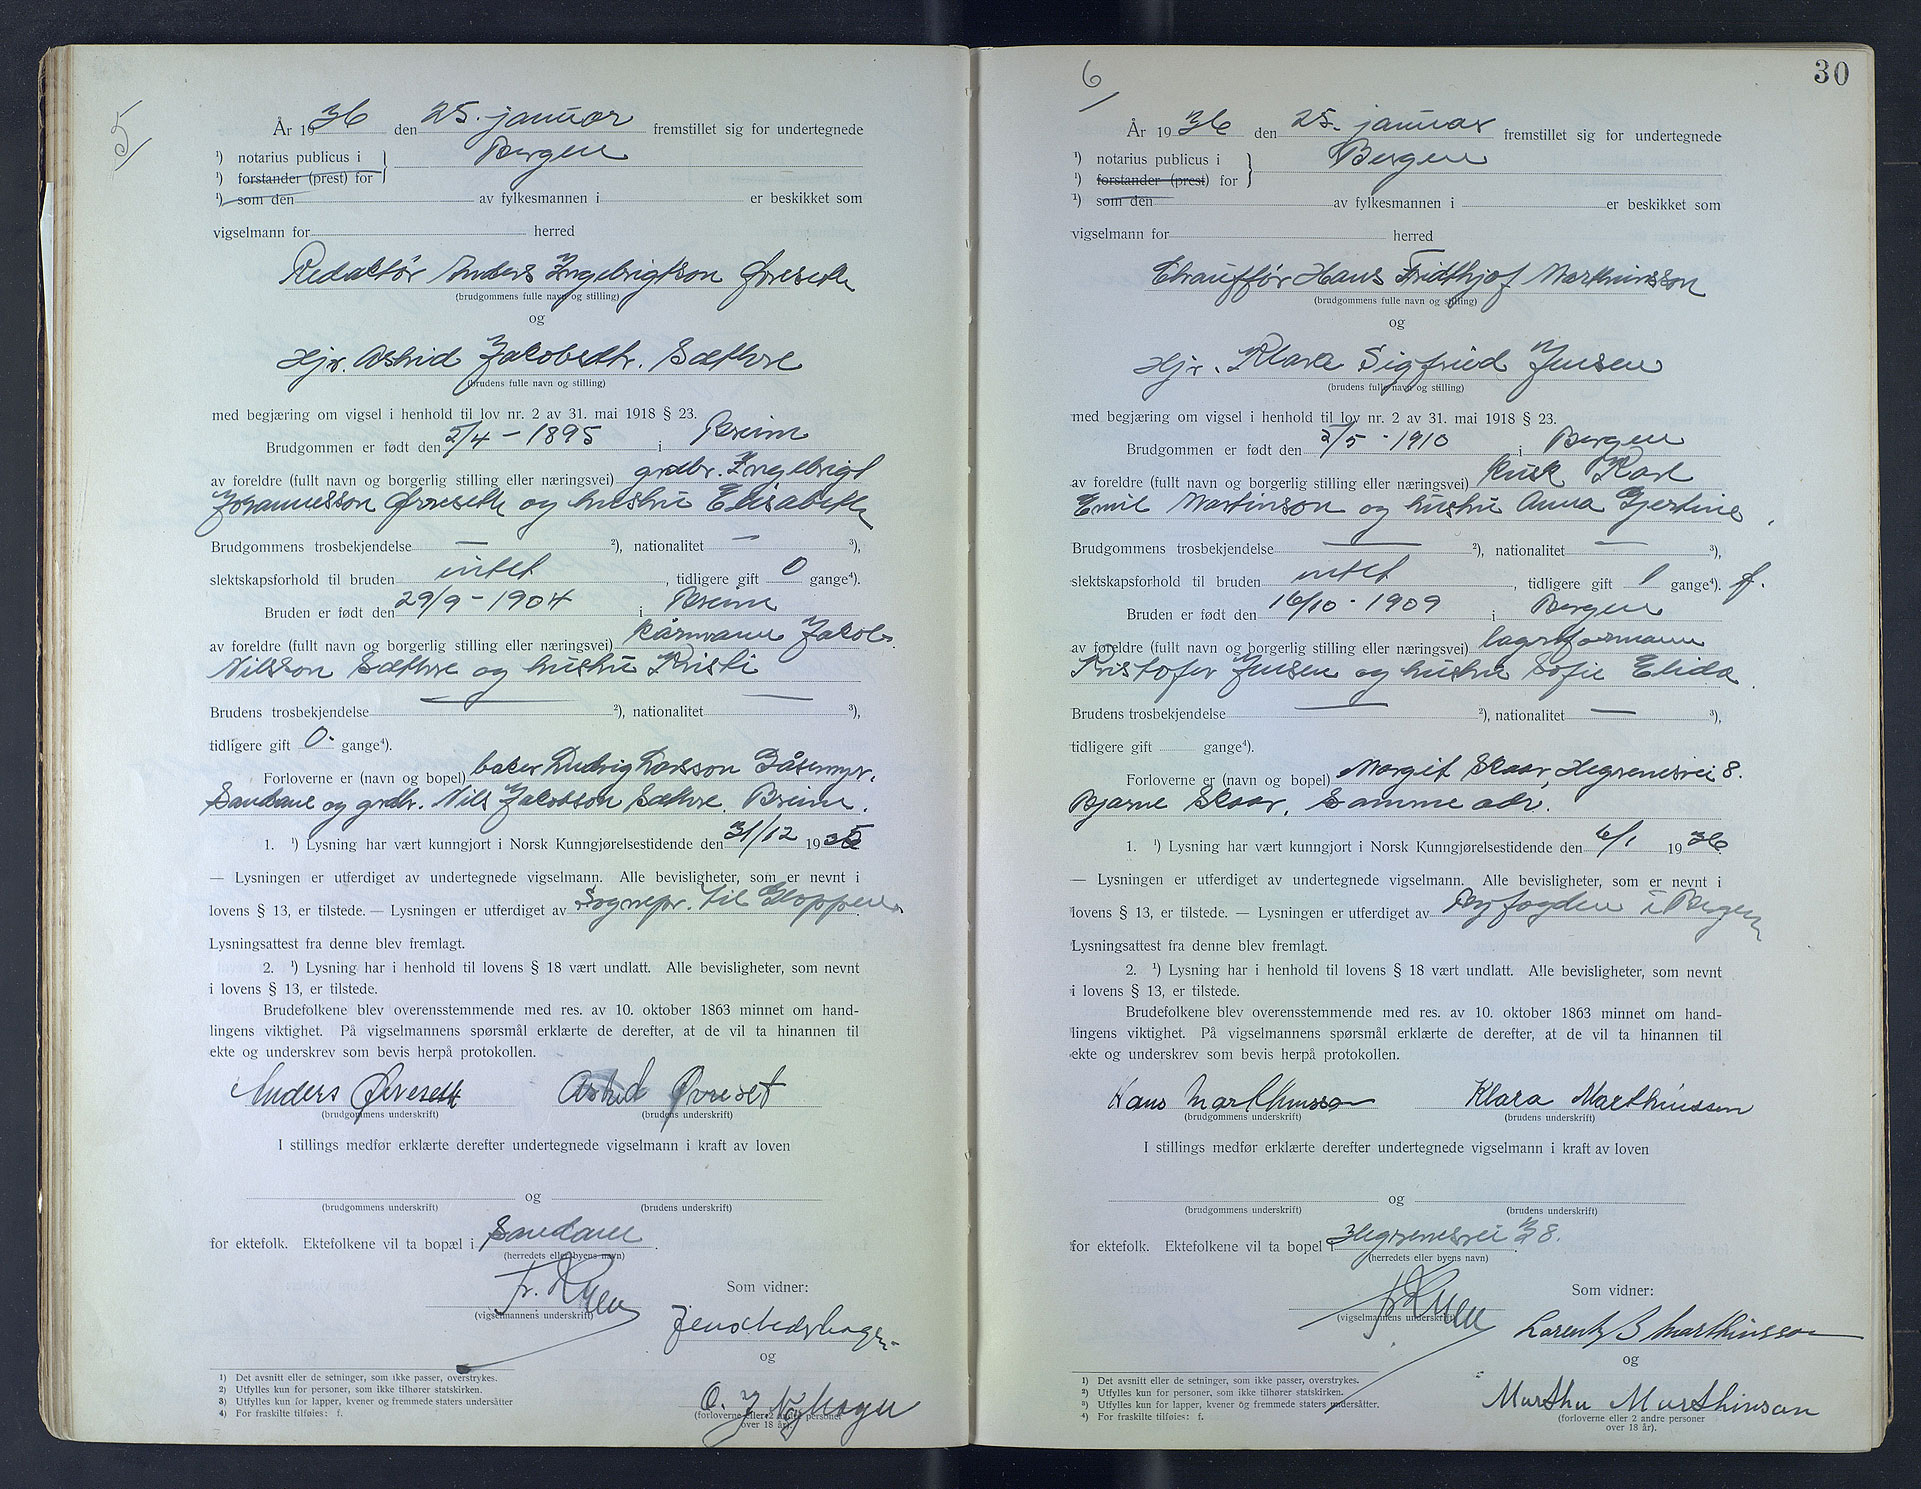 5
År 1936 den 25. januar fremstillet sig for undertegnede
¹) notarius publicus i } Bergen
¹) forstander (prest) for
¹) som den av fylkesmannen i er beskikket som
vigselmann for herred
Redaktør Anders Ingebrigtson Øvreseth
(brudgommens fulle navn og stilling)
og
Hjr. Astrid Jakobsdtr. Sæthre
(brudens fulle navn og stilling)
med begjæring om vigsel i henhold til lov nr. 2 av 31. mai 1918 § 23.
Brudgommen er født den 2/4 - 1895 i Breim
av foreldre (fullt navn og borgerlig stilling eller næringsvei) grdbr. Ingebrigt
Johannesson Øvreseth og hustru Elisabeth
Brudgommens trosbekjendelse — ²), nationalitet — ³),
slektskapsforhold til bruden intet, tidligere gift 0 gange⁴).
Bruden er født den 29/9 - 1904 i Breim
av foreldre (fullt navn og borgerlig stilling eller næringsvei) kårmann Jakob
Nilsson Sæthre og hustru Kristi
Brudens trosbekjendelse — ²), nationalitet — ³),
tidligere gift 0. gange⁴).
Forloverne er (navn og bopel) baker Ludvig Larsson Gåsemyr.
Sandane og grdbr. Nils Jakobson Sæthre. Breim.
1. ¹) Lysning har vært kunngjort i Norsk Kunngjørelsestidende den 31/12 1935
— Lysningen er utferdiget av undertegnede vigselmann. Alle bevisligheter, som er nevnt i
lovens § 13, er tilstede. — Lysningen er utferdiget av Sognepr. til Gloppen
Lysningsattest fra denne blev fremlagt.
2. ¹) Lysning har i henhold til lovens § 18 vært undlatt. Alle bevisligheter, som nevnt
i lovens § 13, er tilstede.
Brudefolkene blev overensstemmende med res. av 10. oktober 1863 minnet om hand-
lingens viktighet. På vigselmannens spørsmål erklærte de derefter, at de vil ta hinannen til
ekte og underskrev som bevis herpå protokollen.
Anders Øvreseth Astrid Øvreset
(brudgommens underskrift) (brudens underskrift)
I stillings medfør erklærte derefter undertegnede vigselmann i kraft av loven
og
(brudgommens underskrift) (brudens underskrift)
for ektefolk. Ektefolkene vil ta bopæl i Sandane.
(herredets eller byens navn)
Fr.
Som vidner:
(vigselmannens underskrift)
og
O. J.
(forloverne eller 2 andre personer
over 18 år).
1) Det avsnitt eller de setninger, som ikke passer, overstrykes.
2) Utfylles kun for personer, som ikke tilhører statskirken.
3) Utfylles kun for lapper, kvener og fremmede staters undersåtter
4) For fraskilte tilføies: f.
6
30
År 1936 den 25. januar fremstillet sig for undertegnede
¹) notarius publicus i } Bergen
¹) forstander (prest) for
¹) som den av fylkesmannen i er beskikket som
vigselmann for herred
Chauffør Hans Fridthjof Marthinsson
(brudgommens fulle navn og stilling)
og
Hjr. Klara Sigfried Jensen
(brudens fulle navn og stilling)
med begjæring om vigsel i henhold til lov nr. 2 av 31. mai 1918 § 23.
Brudgommen er født den 2/5 - 1910 i Bergen
av foreldre (fullt navn og borgerlig stilling eller næringsvei) kusk Karl
Emil Martinson og hustru Anna Gjertine
Brudgommens trosbekjendelse — ²), nationalitet — ³),
slektskapsforhold til bruden intet, tidligere gift 1 gange⁴). f.
Bruden er født den 16/10 - 1909 i Bergen
av foreldre (fullt navn og borgerlig stilling eller næringsvei) lagerformann
Kristofer Jensen og hustru Sofie Elida
Brudens trosbekjendelse — ²), nationalitet — ³),
tidligere gift gange⁴).
Forloverne er (navn og bopel) Margit Skaar, Hegrenesvei 8.
Bjarne Skaar, Samme adr.
1. ¹) Lysning har vært kunngjort i Norsk Kunngjørelsestidende den 6/1 1936
— Lysningen er utferdiget av undertegnede vigselmann. Alle bevisligheter, som er nevnt i
lovens § 13, er tilstede. — Lysningen er utferdiget av Byfogden i Bergen
Lysningsattest fra denne blev fremlagt.
2. ¹) Lysning har i henhold til lovens § 18 vært undlatt. Alle bevisligheter, som nevnt
i lovens § 13, er tilstede.
Brudefolkene blev overensstemmende med res. av 10. oktober 1863 minnet om hand-
lingens viktighet. På vigselmannens spørsmål erklærte de derefter, at de vil ta hinannen til
ekte og underskrev som bevis herpå protokollen.
Hans Marthinsson Klara Marthinssen
(brudgommens underskrift) (brudens underskrift)
I stillings medfør erklærte derefter undertegnede vigselmann i kraft av loven
og
(brudgommens underskrift) (brudens underskrift)
for ektefolk. Ektefolkene vil ta bopel i Hegrenesvei 8.
(herredets eller byens navn)
Som vidner:
(vigselmannens underskrift)
Lorentz B Marthinsson
og
Martha Marthinson
(forloverne eller 2 andre personer
over 18 år).
1) Det avsnitt eller de setninger, som ikke passer, overstrykes.
2) Utfylles kun for personer, som ikke tilhører statskirken.
3) Utfylles kun for lapper, kvener og fremmede staters undersåtter.
4) For fraskilte tilføies: f.